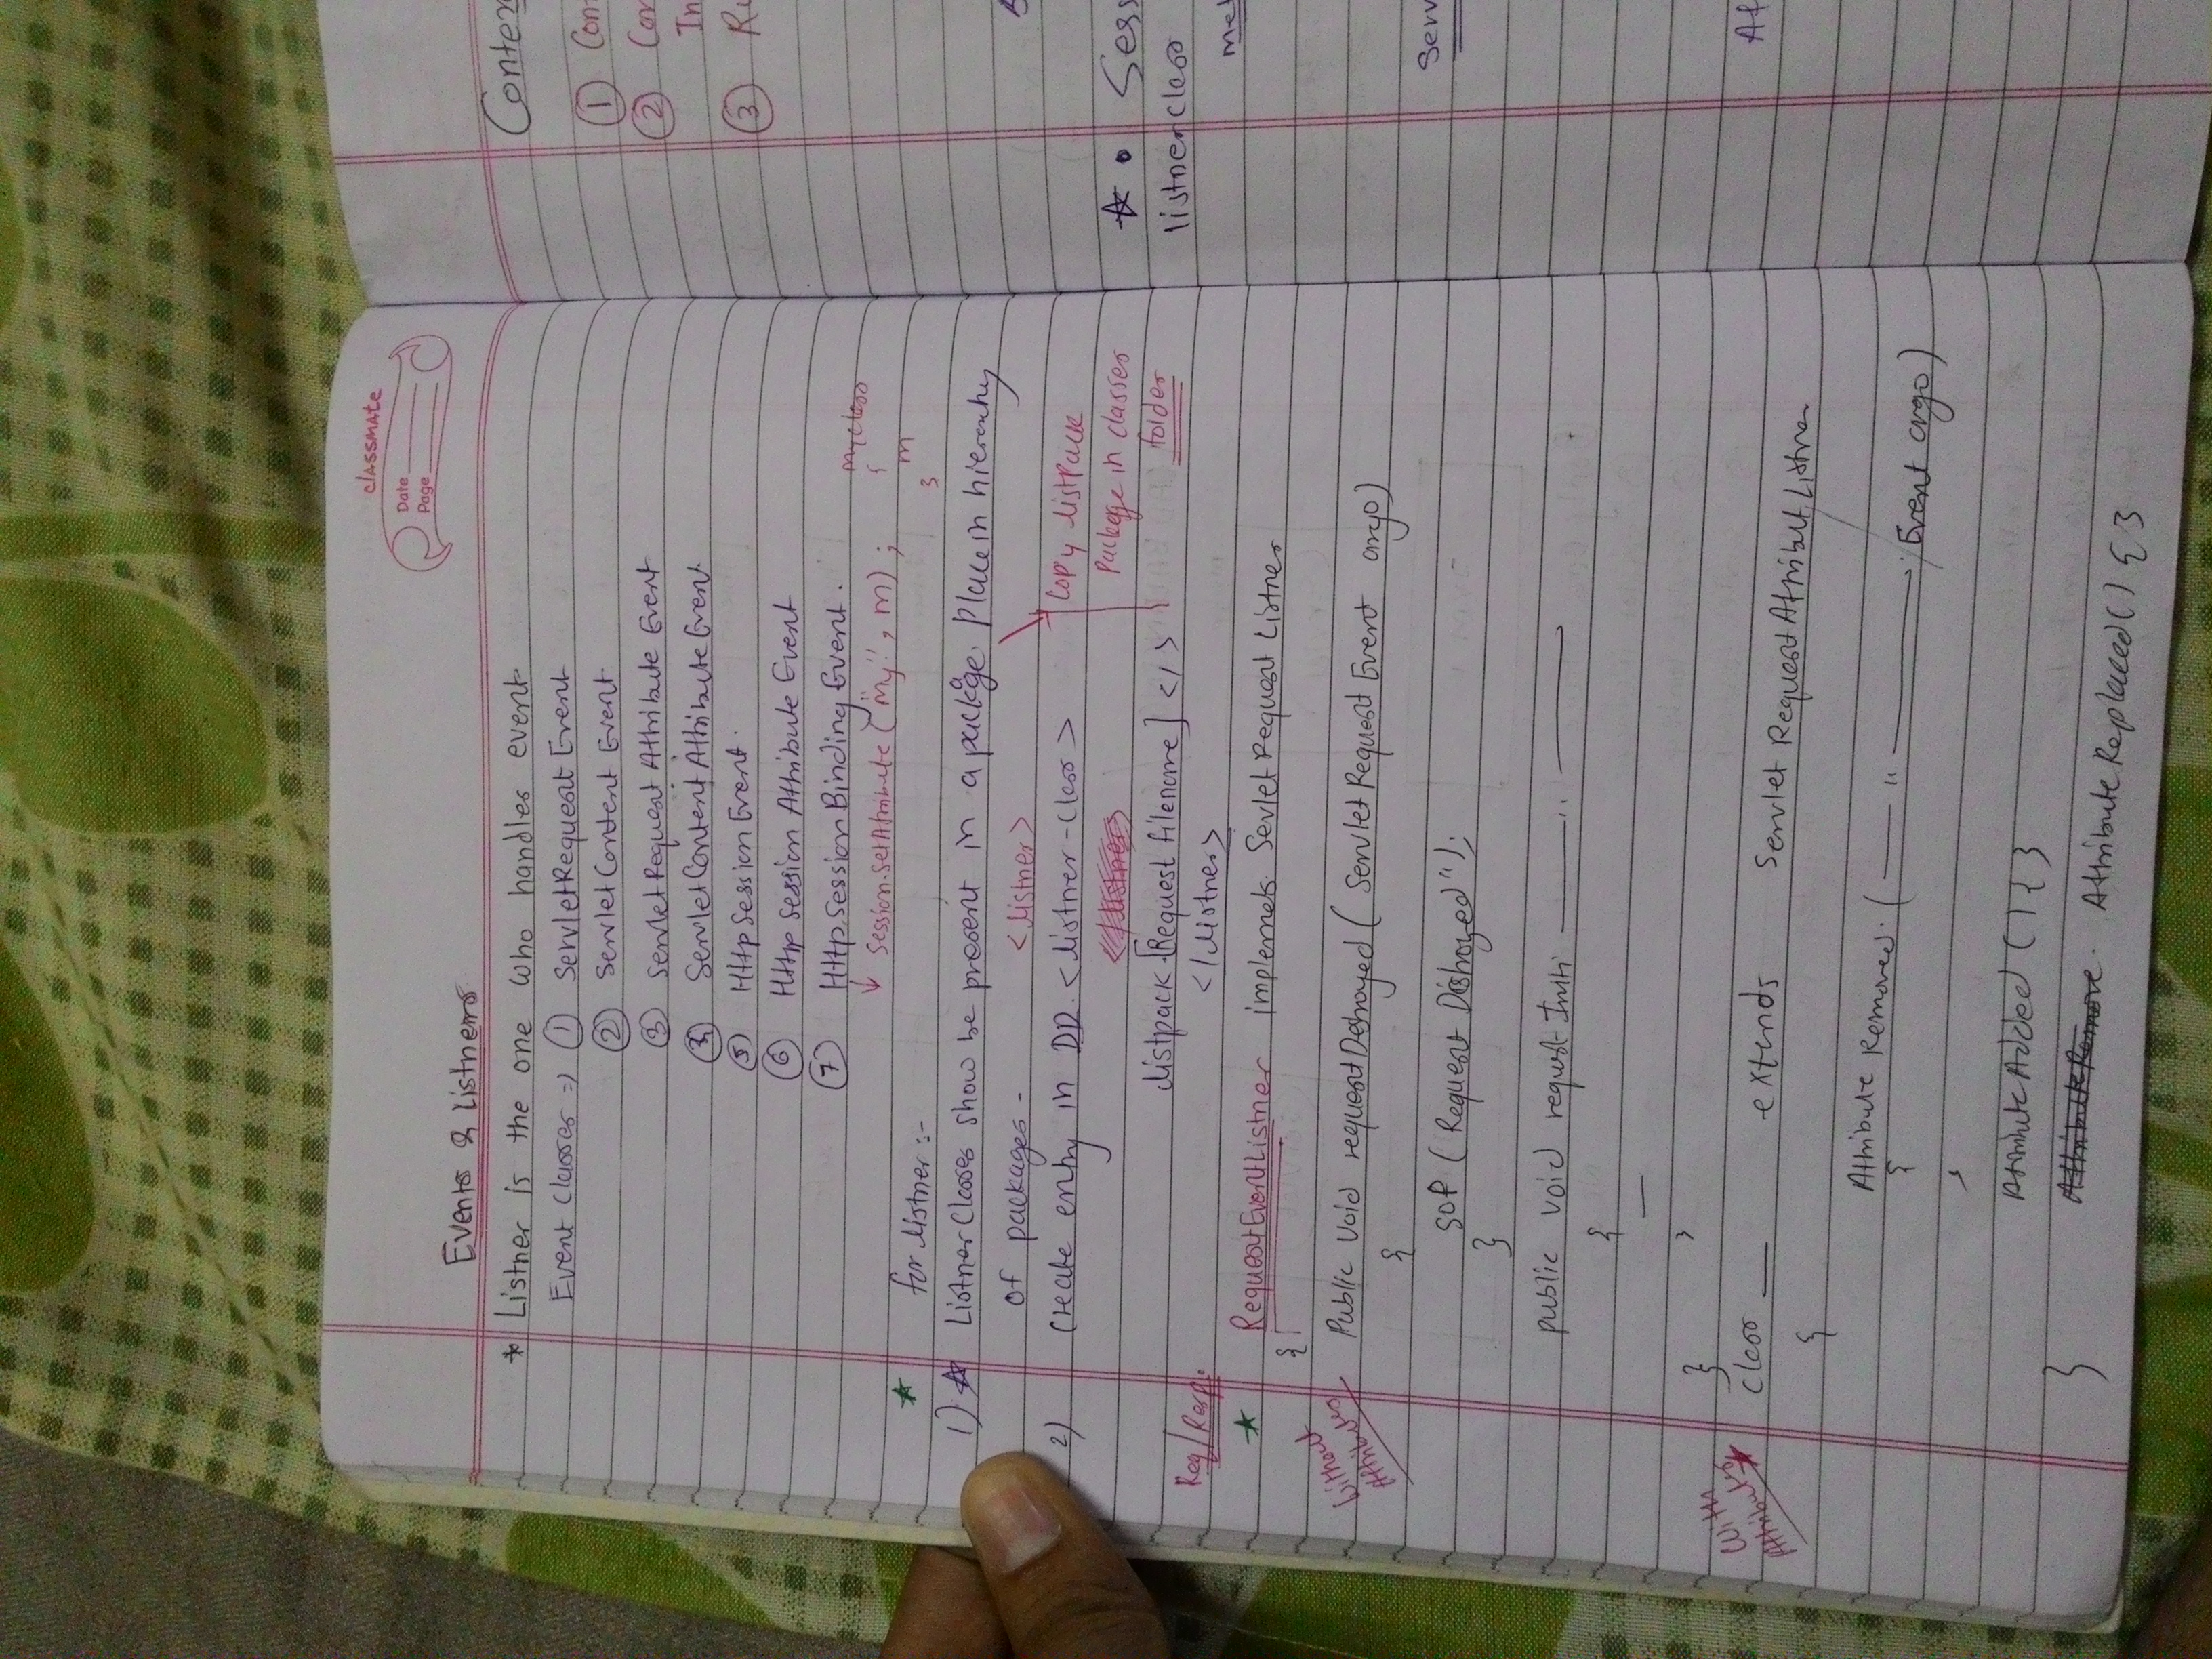 classmate
Date
Page
Events & Listners
* Listner is the one who handles event
Event Classes => ① ServletRequest Event
② Servlet Context Event
③ Servlet Request Attribute Event
③ Servlet Context Attribute Event
⑤ Http Session Event.
⑥ Http Session Attribute Event
⑦ Http Session Binding Event.
Session.setAttribute("my", m);
m
3
for listner :-
1) Listner Classes show be present in a package Place in hierarchy
of packages -
<listner>
2) Create entry in DD. <listner-class>
Copy listpack
Package in classes
folder
listpack.[Request filename] </>
</listner>
Req/Resp.
RequestEventListner implemets ServletRequest Listner
{
Without
Attributes
Public void requestDestroyed ( Servlet Request Event args)
{
SOP ( Request Distroyed");
}
public void request Initi ——— " ———
{
—
}
With
Attributes
Class ___ extends Servlet Request Attribut Listner
{
Attribute Removed. ( —— " ——— Event args)
{
,
Attribute Added () { }
Attribute Remove. Attribute Replaced () { }
}
Conten
① Con
② Con
In
③ Ru
☆ • Sess
listner class
met
Serv
At